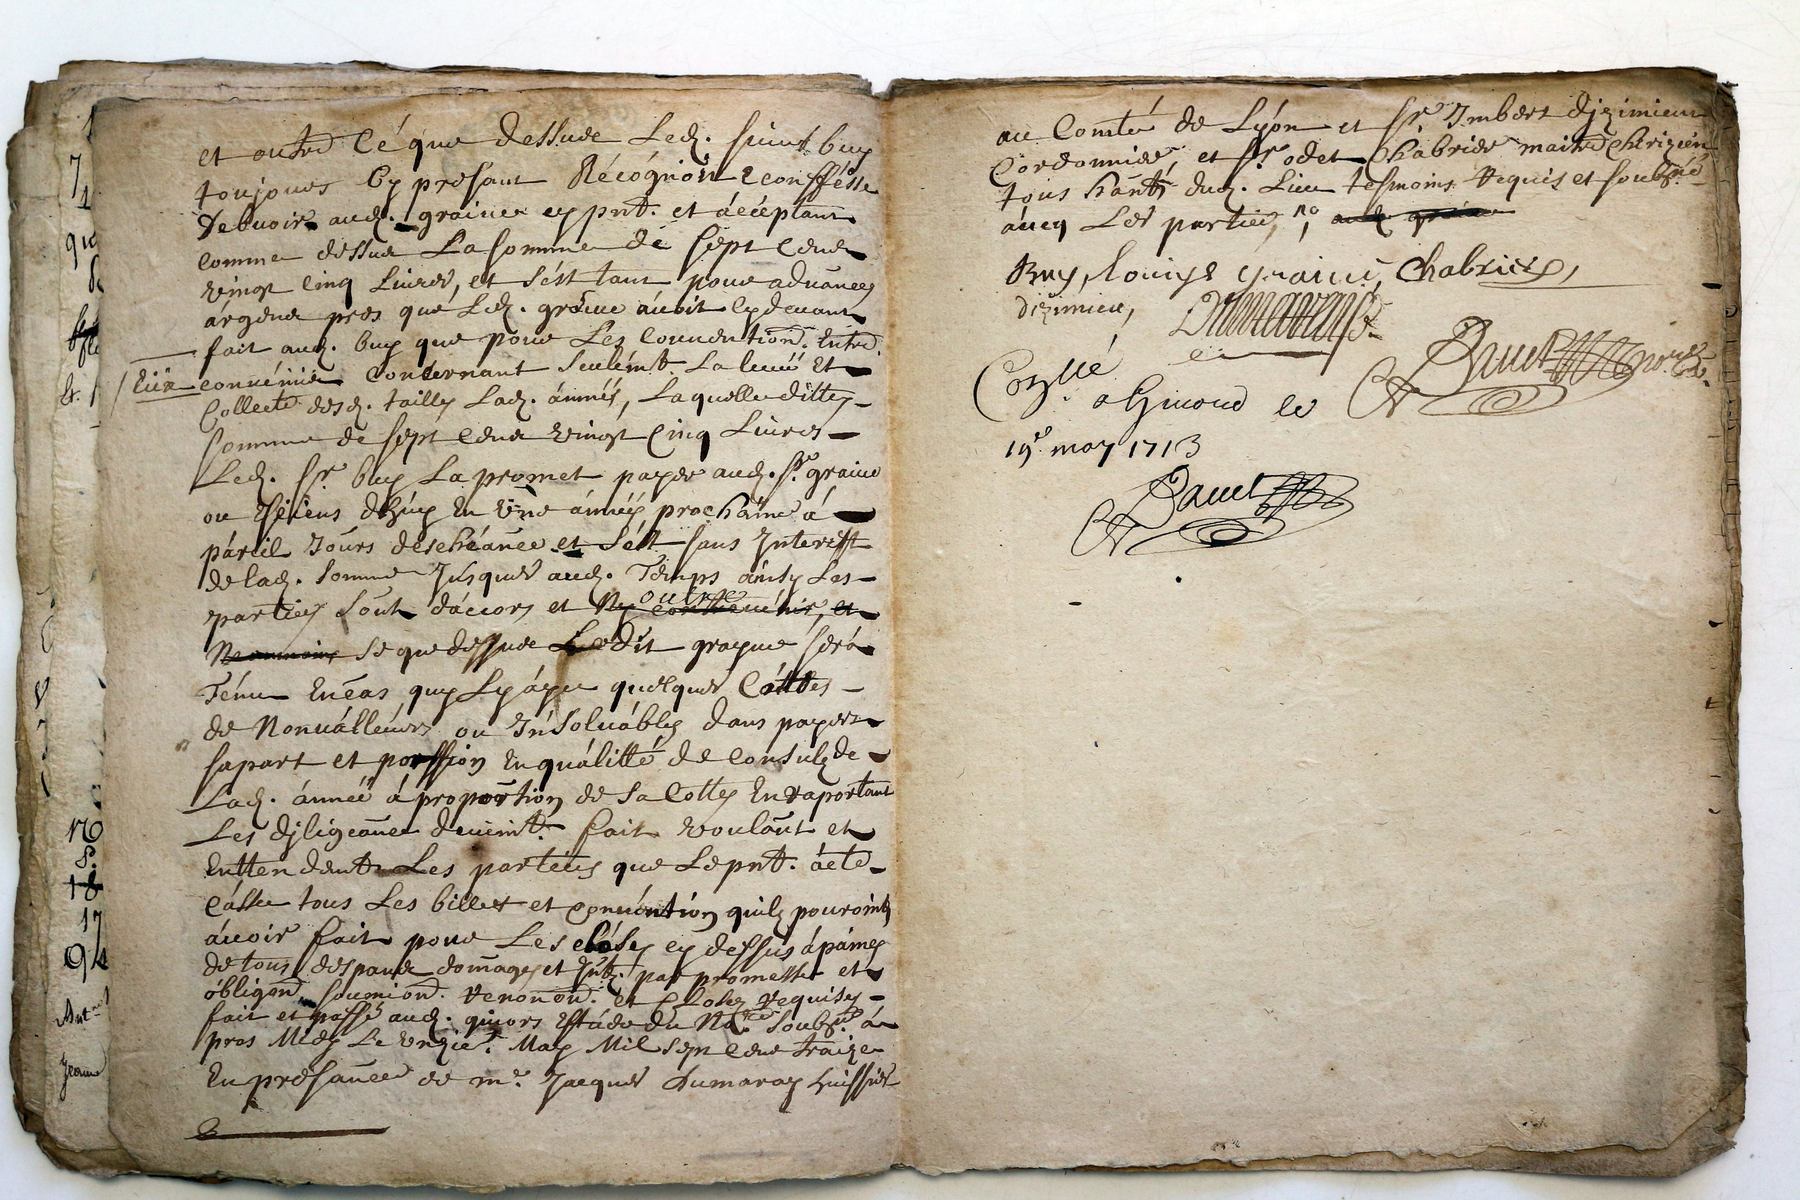 et outre Cé que dessus Led. sieur buy
toujours Cy presant Récógnoit & conffésse
debvoir aud. graine cy pnt. et áccéptant
comme dessus La somme de sept cens
vingt cinq Livres, et c'est tant pour advances
argent pres que Led. graine avoit cy devant
fait aud. buy que pour Les convention. Entre
Eux convenües Concernant seulemt. La levée Et
Collecte desd. tailles Lad. année, Laquelle ditte
somme de sept cens vingt Cinq Livres
Led. Sr. buy La promet payer aud. Sr. graine
ou és siens d'huy En une année prochaine á
páreil jours d'eschéance et c'est sans Interest
de lad. somme jusques aud. Temps ainsy Les
parties sont d'áccors et Ny contrevenir, et
outre
Neanmoins se que dessus Ledit grayne será
Ténu En cas quy Ly áye quelques Cottes
de Nonválleurs ou Insolvábles dans payer
sa part et portion En quálitté de consul de
Lad. année á proportion de sa Cotte En raportant
Les diligeances deuëmt. fait voulant et
Enttendent Les parties que Le pnt. ácte
cásse tous Les billet et convántion quils pouroint
ávoir fait pour Les choses cy dessus á paines
de tous despans domages et Intz. par promesse et
óbligaon. soumion. renonon. et Clozes requises
fait et passé aud. givors Estude du Nore. soubzné. á
pres Midy Le onzie. May Mil sept cens traize
En presance de me. Jacques Dumaray huissier
au Comté de Lyón et Sr. Imbert dizimieu
Cordonnier, et Sr. odet Chabrier maitre Chirizién
tous hántz dud. Lieu tesmoins requis et soubzné
ávecq Les parties,
Buy, louys graine, Chabrier,
dizimieu, Dumaray
Bauet nore.
Con.llé
a Givord le
19e. may 1713
Bauet
17
94